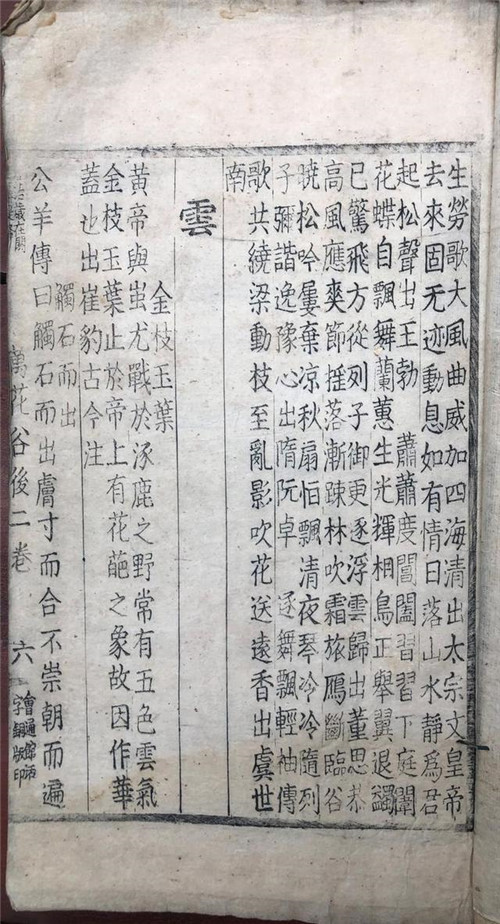 生勞歌大風曲威加四海清出太宗文皇帝
去來固无迹動息如有情日落山水靜爲君
起松聲出王勃 蕭蕭度閶闔習習下庭闈
花蝶自飄舞蘭蕙生光輝相鳥正舉翼退鷁
已驚飛方從列子御更逐浮雲歸出董思恭
高風應爽節摇落漸踈林吹霜旅鴈斷臨谷
曉松吟屢棄凉秋扇怕飄清夜琴冷冷隨列
子彌諧逸豫心出隋阮卓 逐舞飄輕袖傳
歌共繞梁動枝至亂影吹花送遠香出虞世
南
雲
金枝玉葉
黄帝與蚩尤戰於涿鹿之野常有五色雲氣
金枝玉葉止於帝上有花葩之象故因作華
蓋也出崔豹古今注
觸石而出
公羊傳曰觸石而出膚寸而合不崇朝而遍
萬花谷後二卷 六
會通館活
字銅版印